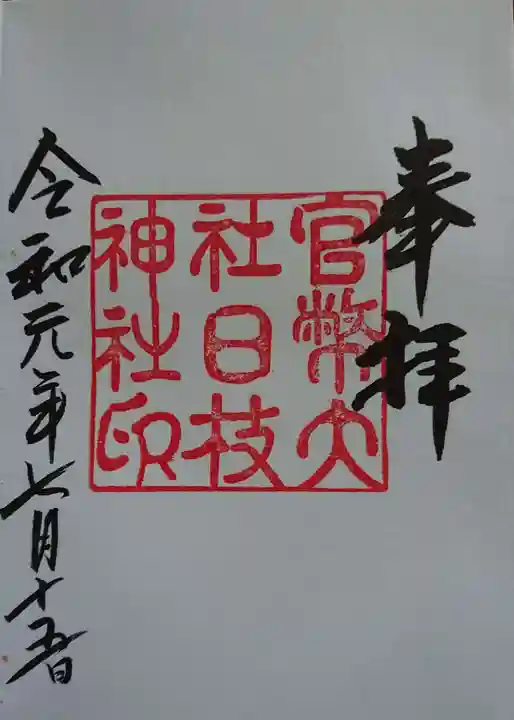 奉拝
官幣大
社日技
神社印
令和元年七月十五日